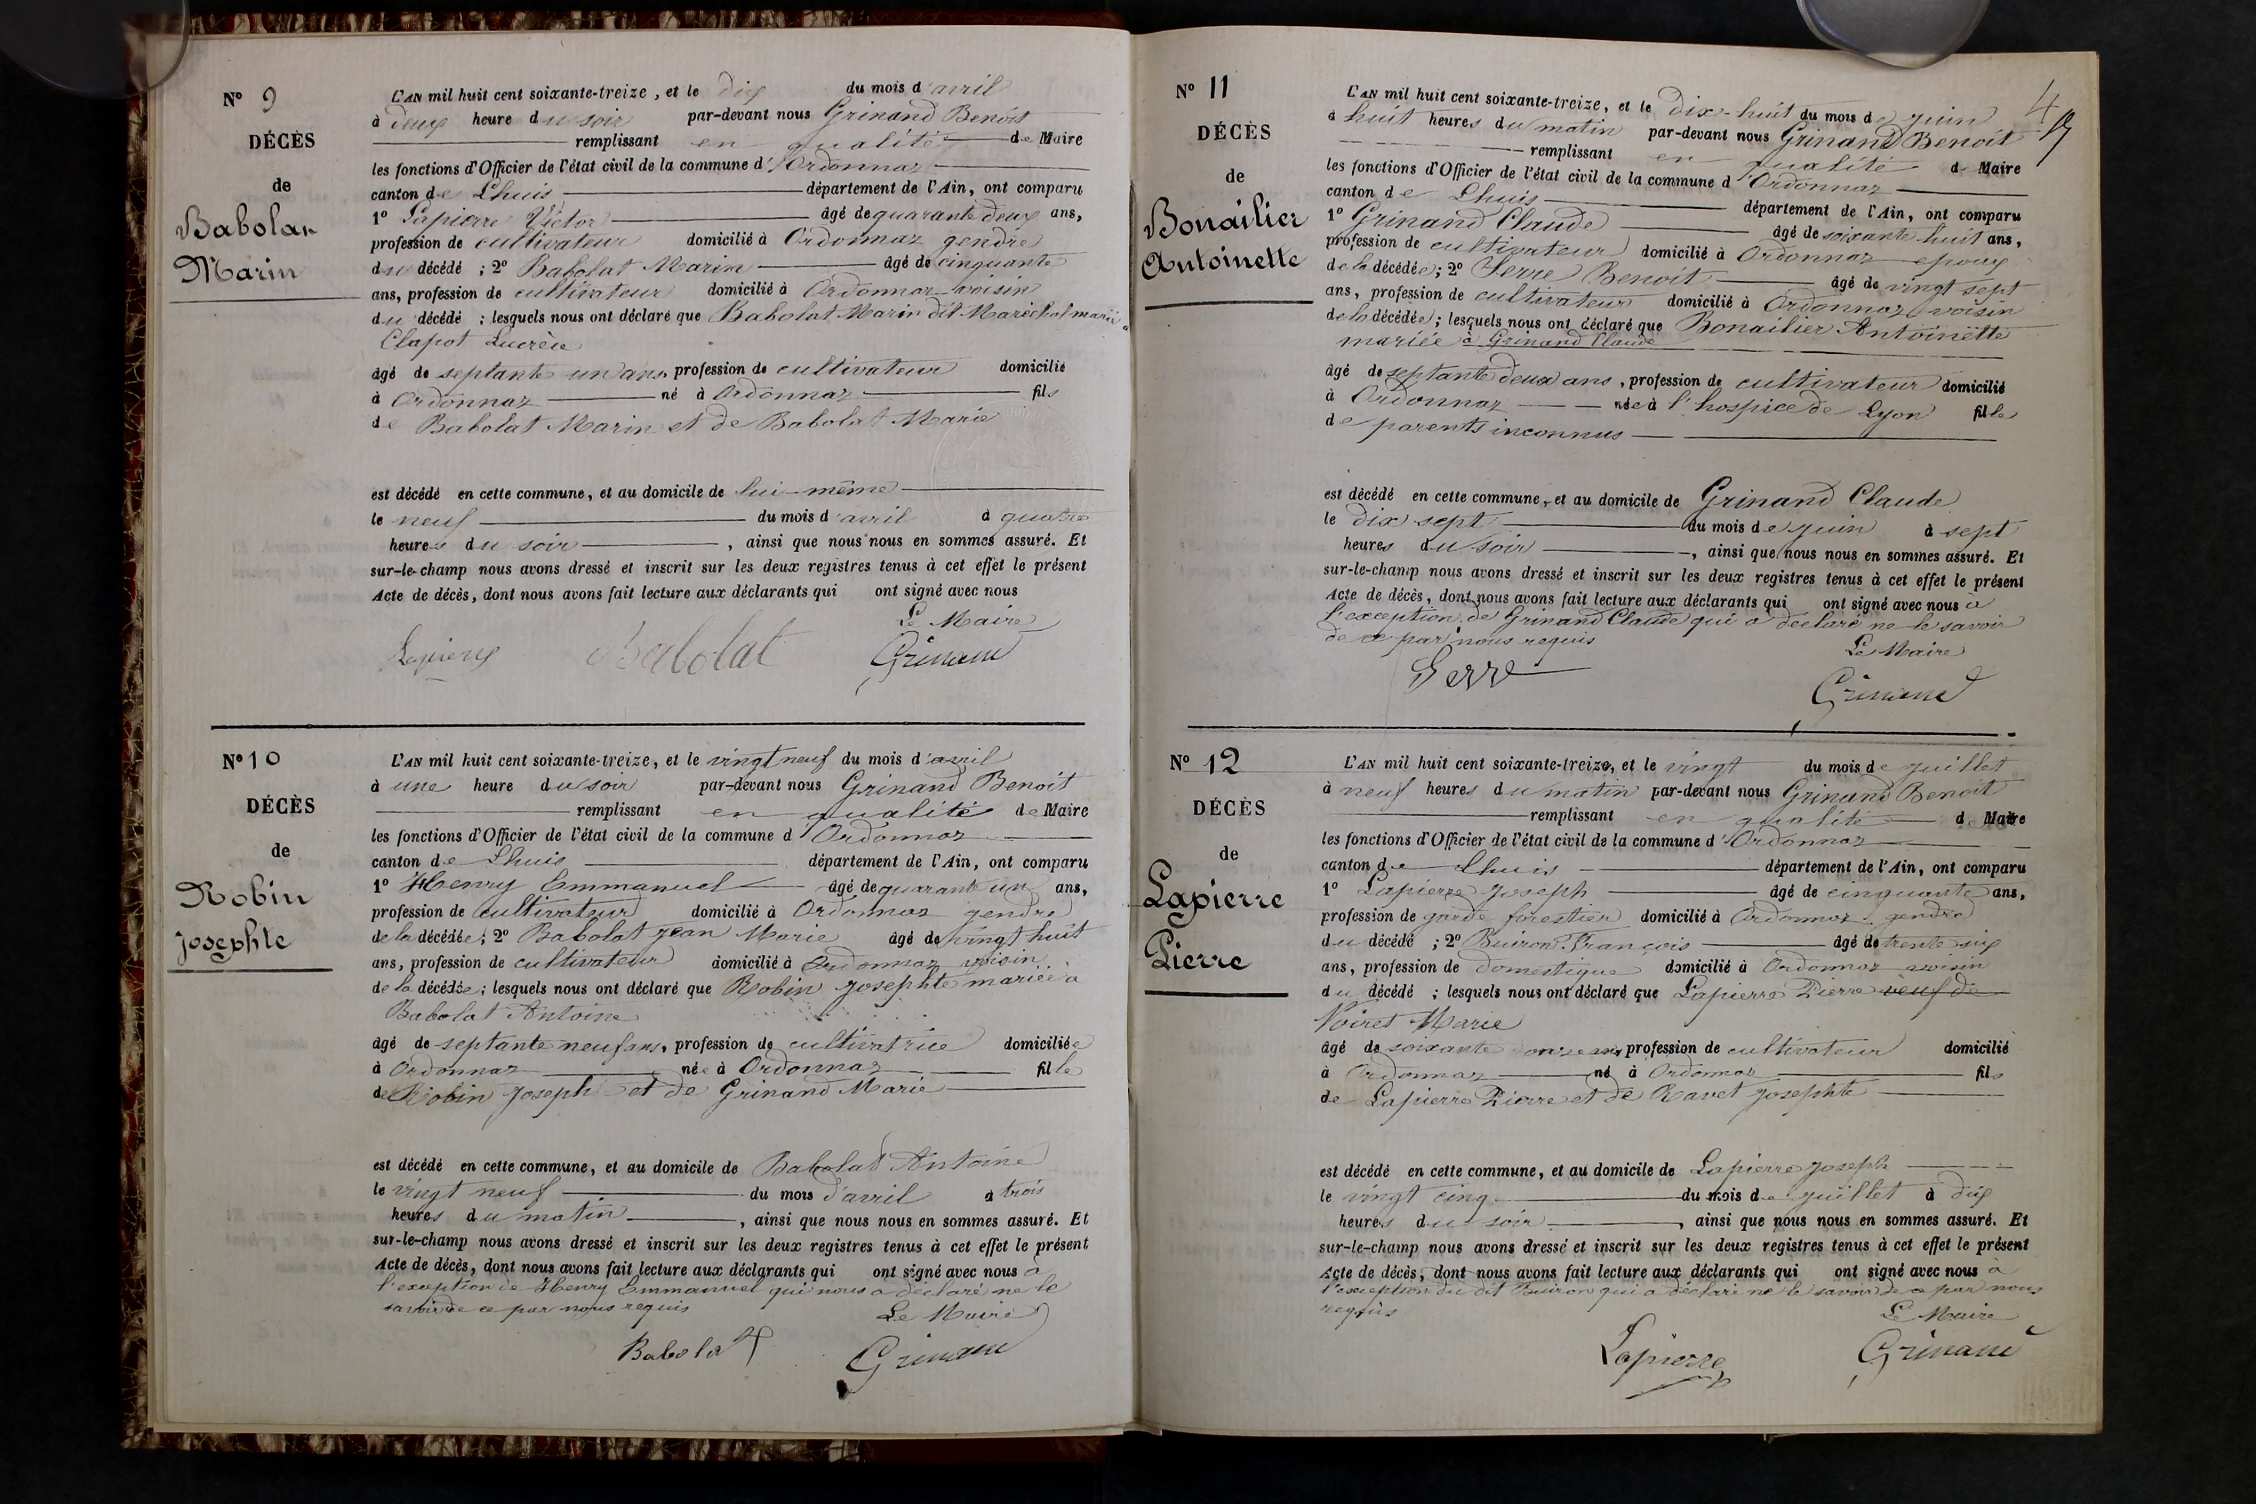 N° 9
DÉCÈS
de
Babolat
Marin
L'AN mil huit cent soixante-treize, et le dix du mois d'avril
à deux heure du soir par-devant nous Grinand Benoit
remplissant en qualité de Maire
les fonctions d'Officier de l'état civil de la commune d'Ordonnaz
canton de Lhuis département de l'Ain, ont comparu
1° Lapierre Victor âgé de quarante deux ans,
profession de cultivateur domicilié à Ordonnaz gendre
du décédé ; 2° Babolat Marin âgé de cinquante
ans, profession de cultivateur domicilié à Ordonnaz voisin
du décédé ; lesquels nous ont déclaré que Babolat Marin dit Maréchal marié à
Clapot Lucrèce
âgé de septante un ans, profession de cultivateur domicilié
à Ordonnaz né à Ordonnaz fils
de Babolat Marin et de Babolat Marie
est décédé en cette commune, et au domicile de lui-même
le neuf du mois d'avril à quatre
heures du soir, ainsi que nous nous en sommes assuré. Et
sur-le-champ nous avons dressé et inscrit sur les deux registres tenus à cet effet le présent
Acte de décès, dont nous avons fait lecture aux déclarants qui ont signé avec nous
Le Maire
Babolat Grinand
N° 10
DÉCÈS
de
Robin
Josephte
L'AN mil huit cent soixante-treize, et le vingt neuf du mois d'avril
à une heure du soir par-devant nous Grinand Benoit
remplissant en qualité de Maire
les fonctions d'Officier de l'état civil de la commune d'Ordonnaz
canton de Lhuis département de l'Ain, ont comparu
1° Henry Emmanuel âgé de quarante un ans,
profession de cultivateur domicilié à Ordonnaz gendre
de la décédée ; 2° Babolat Jean Marie âgé de vingt huit
ans, profession de cultivateur domicilié à Ordonnaz voisin
de la décédée ; lesquels nous ont déclaré que Robin Josephte mariée à
Babolat Antoine
âgé de septante neuf ans, profession de cultivatrice domiciliée
à Ordonnaz née à Ordonnaz fille
de Robin Joseph et de Grinand Marie
est décédé en cette commune, et au domicile de Babolat Antoine
le vingt neuf du mois d'avril à trois
heures du matin, ainsi que nous nous en sommes assuré. Et
sur-le-champ nous avons dressé et inscrit sur les deux registres tenus à cet effet le présent
Acte de décès, dont nous avons fait lecture aux déclarants qui ont signé avec nous à
l'exception de Henry Emmanuel qui nous a déclaré ne le
savoir de ce par nous requis
Le Maire
Babolat Grinand
4
N° 11
DÉCÈS
de
Bonailier
Antoinette
L'AN mil huit cent soixante-treize, et le dix-huit du mois de juin
à huit heures du matin par-devant nous Grinand Benoit
remplissant en qualité de Maire
les fonctions d'Officier de l'état civil de la commune d'Ordonnaz
canton de Lhuis département de l'Ain, ont comparu
1° Grinand Claude âgé de soixante huit ans,
profession de cultivateur domicilié à Ordonnaz epoux
de la décédée ; 2° Serre Benoit âgé de vingt sept
ans, profession de cultivateur domicilié à Ordonnaz voisin
de la décédée ; lesquels nous ont déclaré que Bonailier Antoinette
mariée à Grinand Claude
âgé de septante deux ans, profession de cultivateur domicilié
à Ordonnaz née à l'hospice de Lyon fille
de parents inconnus
est décédé en cette commune, et au domicile de Grinand Claude
le dix sept du mois de juin à sept
heures du soir, ainsi que nous nous en sommes assuré. Et
sur-le-champ nous avons dressé et inscrit sur les deux registres tenus à cet effet le présent
Acte de décès, dont nous avons fait lecture aux déclarants qui ont signé avec nous à
l'exception de Grinand Claude qui a déclaré ne le savoir
de ce par nous requis
Le Maire
Serre Grinand
N° 12
DÉCÈS
de
Lapierre
Pierre
L'AN mil huit cent soixante-treize, et le vingt du mois de juillet
à neuf heures du matin par-devant nous Grinand Benoit
remplissant en qualité de Maire
les fonctions d'Officier de l'état civil de la commune d'Ordonnaz
canton de Lhuis département de l'Ain, ont comparu
1° Lapierre Joseph âgé de cinquante ans,
profession de garde forestier domicilié à Ordonnaz gendre
du décédé ; 2° Buiron François âgé de trente six
ans, profession de domestique domicilié à Ordonnaz voisin
du décédé ; lesquels nous ont déclaré que Lapierre Pierre veuf de
Noiret Marie
âgé de soixante onze ans, profession de cultivateur domicilié
à Ordonnaz né à Ordonnaz fils
de Lapierre Pierre et de Ravet Josephte
est décédé en cette commune, et au domicile de Lapierre Joseph
le vingt cinq du mois de juillet à dix
heures du soir, ainsi que nous nous en sommes assuré. Et
sur-le-champ nous avons dressé et inscrit sur les deux registres tenus à cet effet le présent
Acte de décès, dont nous avons fait lecture aux déclarants qui ont signé avec nous à
l'exception du dit Buiron qui a déclaré ne le savoir de ce par nous
requis
Le Maire
Lapierre Grinand